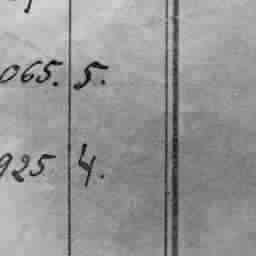 065. 5.
925 4.